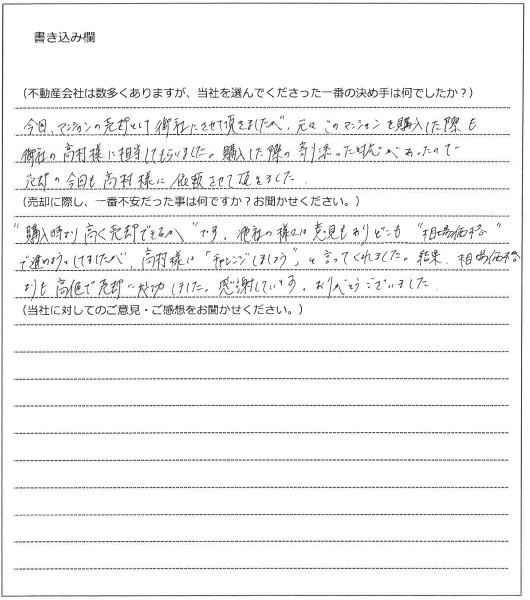 書き込み欄
（不動産会社は数多くありますが、当社を選んでくださった一番の決め手は何でしたか？）
今回、マンションの売却として御社にさせて頂きましたが、元々このマンションを購入した際も
御社の高村様に担当してもらいました。購入した際の寄り添った対応があったので
売却の今回も高村様に依頼させて頂きました。
（売却に際し、一番不安だった事は何ですか？お聞かせください。）
"購入時より高く売却できるか"です。他社の様には意見もありどこも"相場価格"
で進めようとしてましたが、高村様は「チャレンジしましょう」と言ってくれました。結果、相場価格
よりも高値で売却に成功しました。感謝しています。ありがとうございました。
（当社に対してのご意見・ご感想をお聞かせください。）